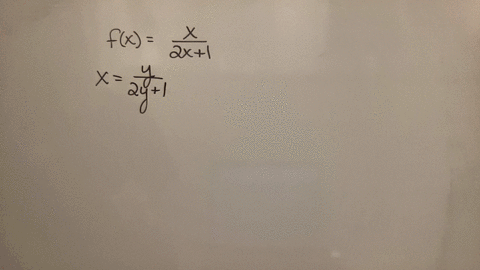 f(x) = x/(2x+1)
x = y/(2y+1)